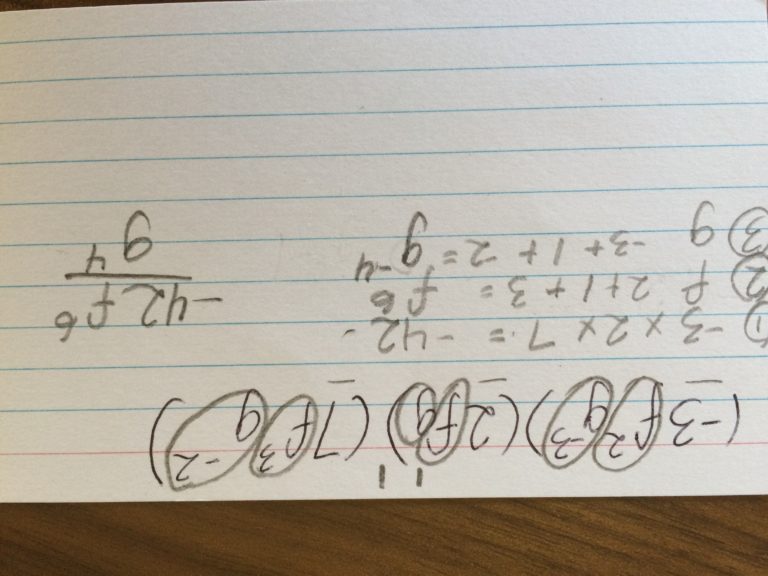 (-3f²g⁻³)(2f¹g¹)(7f³g⁻²)
① -3 × 2 × 7 = -42
② f 2+1+3 = f⁶
③ g -3+1+-2 = g⁻⁴
-42f⁶
g⁴